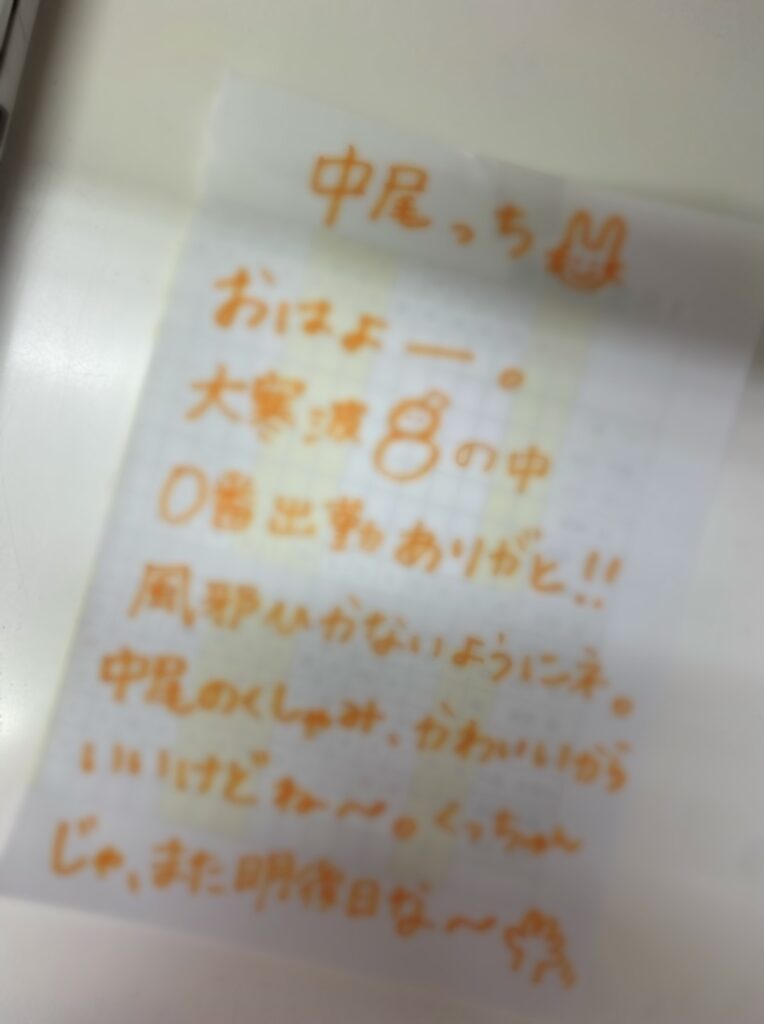 中尾っち
おはよー。
大寒波の中
0番出勤ありがと!!
風邪ひかないようにネ。
中尾のくしゃみ、かわいいから
いいけどね〜。くっちゅん
じゃ、また明後日な〜